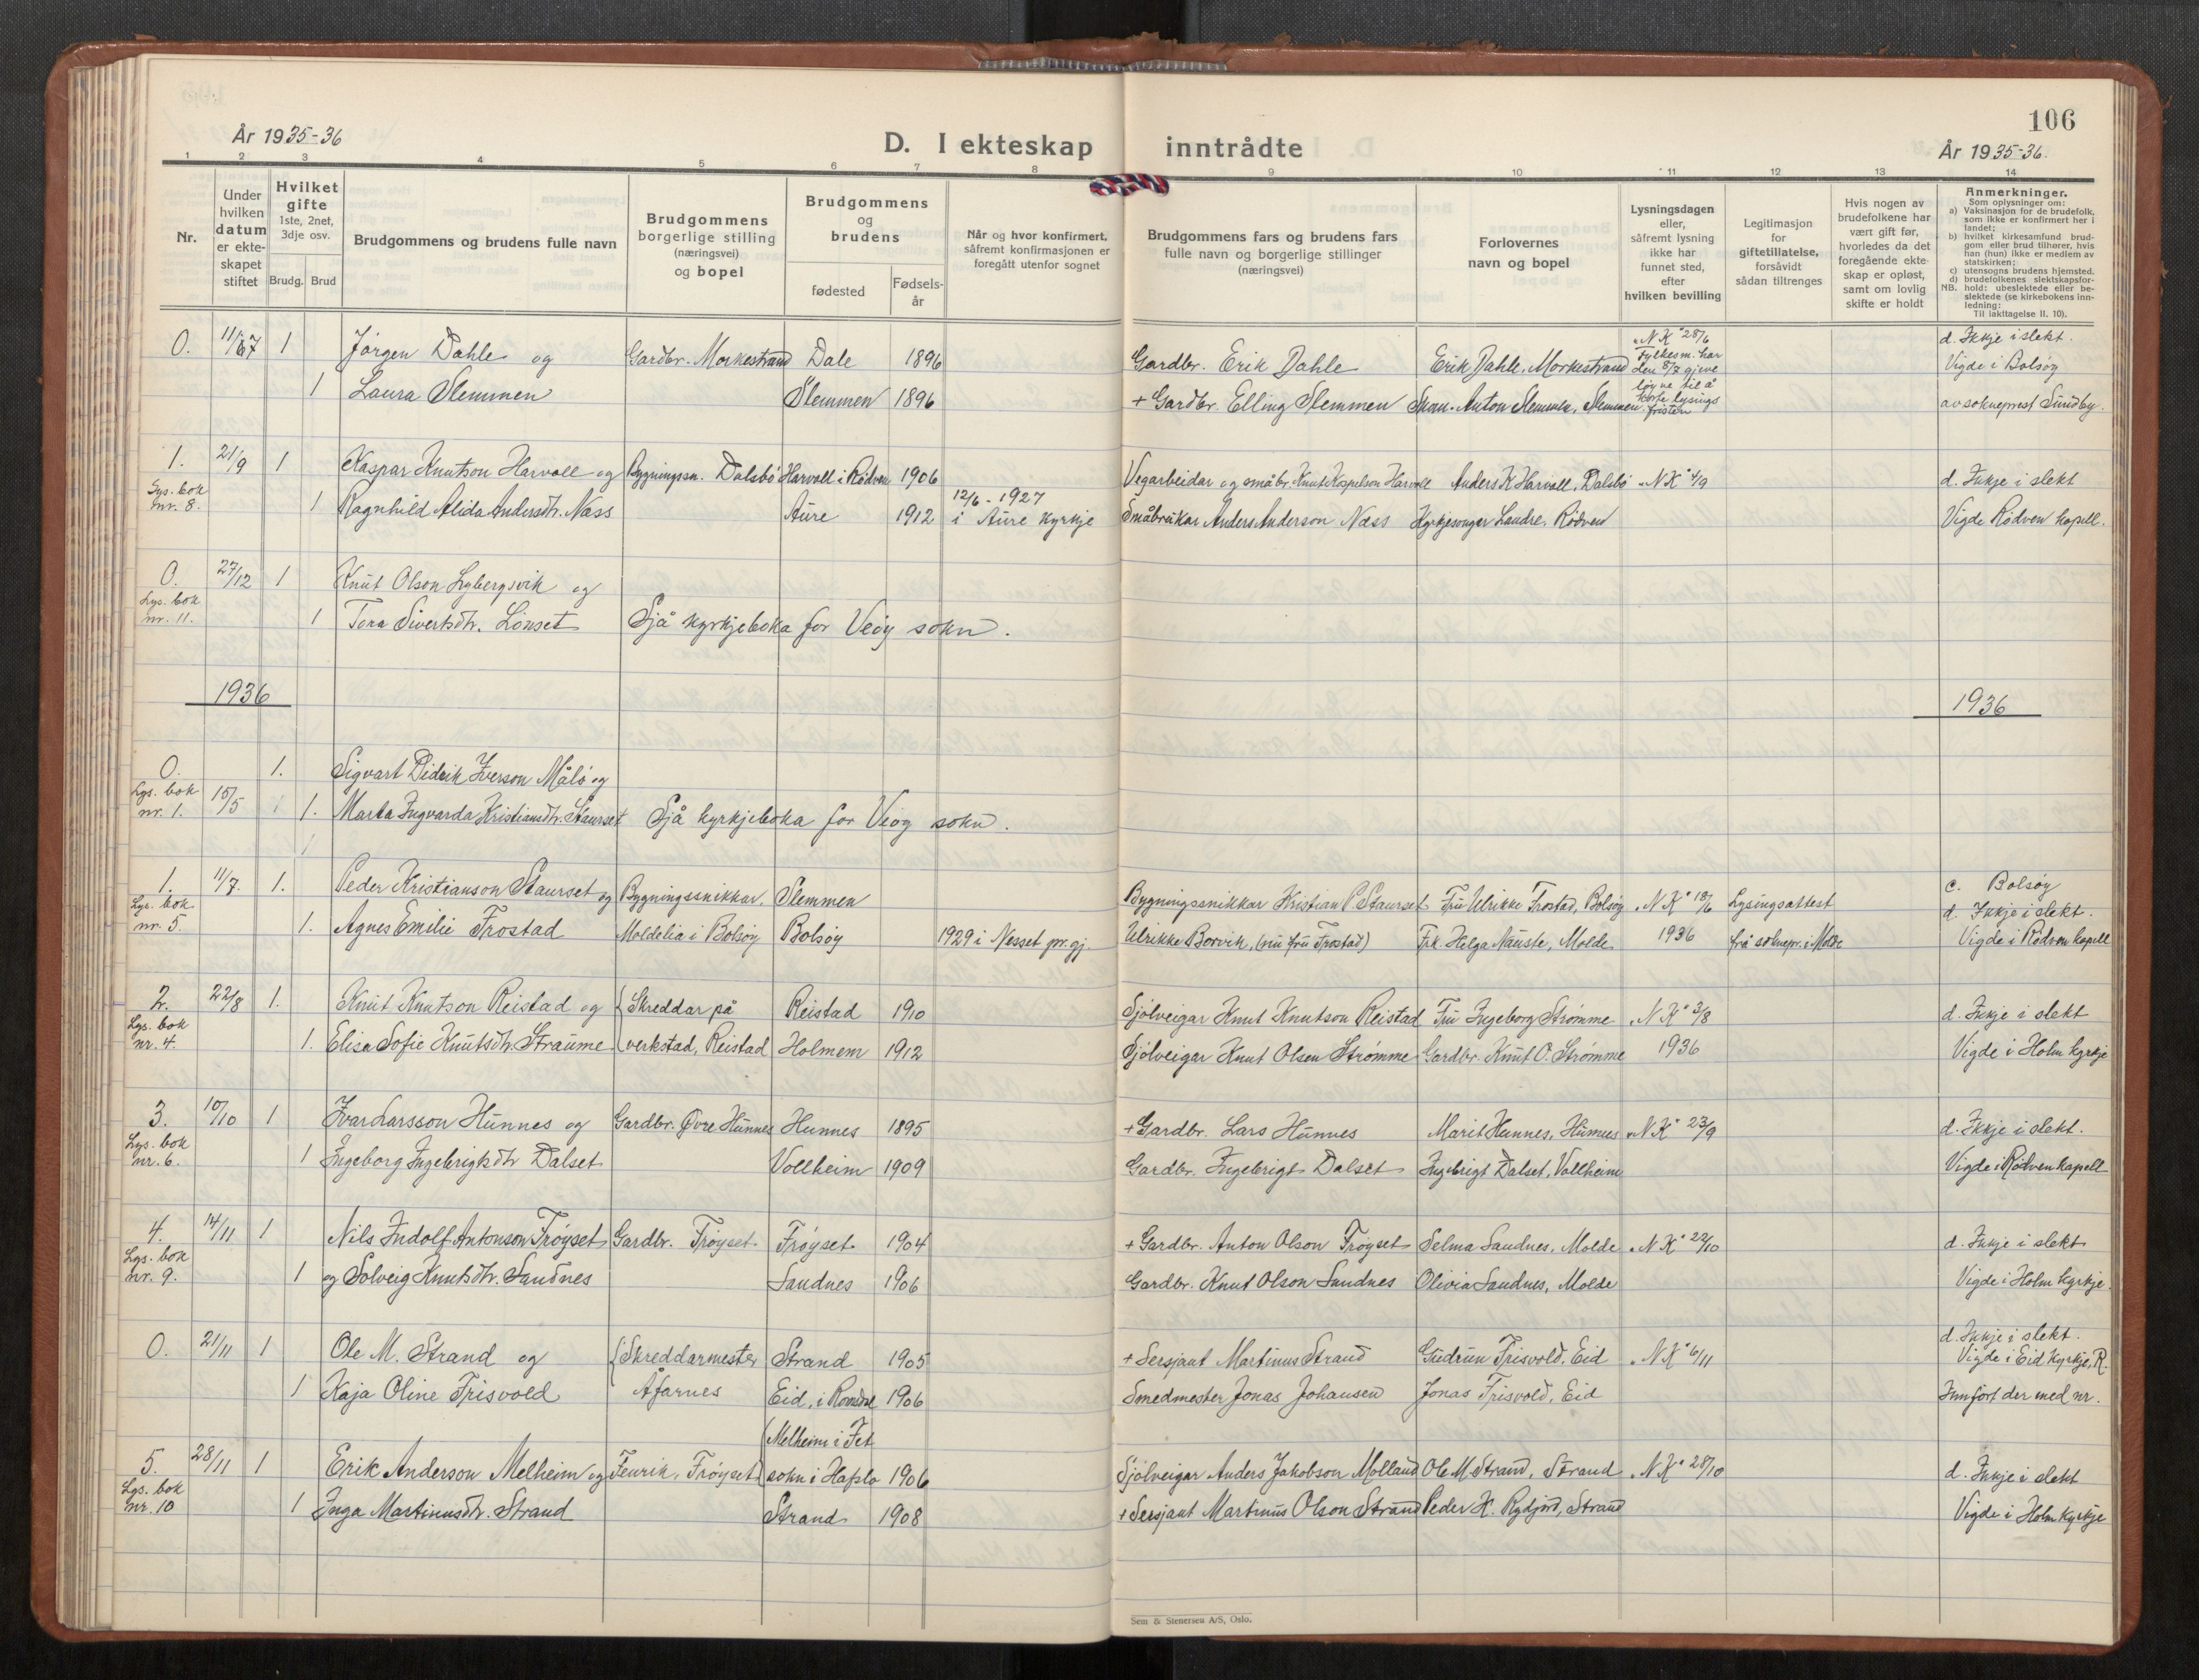 106
År 1935-36
D. I ekteskap inntrådte
År 1935-36.
1 2 3 4 5 6 7 8 9 10 11 12 13 14
Nr.
Under hvilken datum er ekteskapet stiftet
Hvilket gifte 1ste, 2net, 3dje osv.
Brudg. Brud
Brudgommens og brudens fulle navn
Brudgommens borgerlige stilling (næringsvei) og bopel
Brudgommens og brudens
fødested
Fødselsår
Når og hvor konfirmert, såfremt konfirmasjonen er foregått utenfor sognet
Brudgommens fars og brudens fars fulle navn og borgerlige stillinger (næringsvei)
Forlovernes navn og bopel
Lysningsdagen eller, såfremt lysning ikke har funnet sted, efter hvilken bevilling
Legitimasjon for giftetillatelse, forsåvidt sådan tiltrenges
Hvis nogen av brudefolkene har vært gift før, hvorledes da det foregående ekteskap er opløst, samt om lovlig skifte er holdt
Anmerkninger.
Som oplysninger om:
a) Vaksinasjon for de brudefolk, som ikke er konfirmert her i landet;
b) hvilket kirkesamfund brudgom eller brud tilhører, hvis han (hun) ikke er medlem av statskirken;
c) utensogns brudens hjemsted.
d) brudefolkenes slektskapsforhold: ubeslektede eller beslektede (se kirkebokens innledning:
NB.
Til iakttagelse II. 10).
0. 1 Jørgen Dahle og Gardbr. Morkestrand Dale 1896 Gardbr. Erik Dahle Erik Dahle, Morkestrand "N K" 28/6 Fylkesm. har den 8/7 gjeve d. Ikkje i slekt. Vigde i Bolsøy
1 Laura Slemmen Slemmen 1896 + Gardbr. Elling Slemmen Anton Slemmen, Slemmen løyve til å korte lysingsfristen av sokneprest Sundby.
1. 21/9 1 Kaspar Knutson Harvoll og Bygningssn. Dalsbø Harvoll i Rødven 1906 Vegarbeidar og småbr. Knut Harvoll Anders K Harvoll, Dalsbø "N K" 4/9 d. Ikkje i slekt
Lys. bok nr. 8. 1 Ragnhild Alida Andersdtr. Næss Aure 1912 12/6-1927 i Aure kyrkje Småbrukar Anders Anderson Næss Kyrkjesongar Landre, Rødven Vigde Rødven kapell.
0. 27/12 1 Knut Olson Lybergsvik og
Lys. bok nr. 11. 1 Tora Sivertsdtr. Lønset Sjå kyrkjeboka for Veøy sokn.
1936 1936
0. 1. Sigvart Didrik Iverson Målø og
Lys. bok nr. 1. 15/5 1. Marta Ingvarda Kristiansdtr. Staurset Sjå kyrkjeboka for Veøy sokn.
1. 11/7. 1. Peder Kristianson Staurset og Bygningssnikkar, Slemmen Bygningssnikkar Kristian P Staurset Fru Ulrikke Frostad, Bolsøy "N K" 18/6 Lysingsattest c. Bolsøy d. Ikkje i slekt.
Lys. bok nr. 5. 1. Agnes Emilie Frostad Moldelia i Bolsøy Bolsøy 1929 i Nesset pr.gj. Ulrikke Borvik, (nu fru Frostad) Frk. Helga Nauste, Molde 1936 frå soknepr. i Molde Vigde i Rødven kapell
2. 22/8 1. Knut Knutson Reistad og Skreddar på Reistad 1910 Sjølveigar Knut Knutson Reistad Fru Ingeborg Strømme "N K" 3/8 d. Ikkje i slekt
Lys. bok nr. 4. 1. Elise Sofie Knutsdtr. Straume verkstad, Reistad Holmem 1912 Sjølveigar Knut Olsen Strømme Gardbr. Knut O. Strømme 1936 Vigde i Holm kyrkje
3. 10/10 1 Ivar Larsson Hunnes og Gardbr. Øvre Hunnes Hunnes 1895 + Gardbr. Lars Hunnes Marit Hunnes, Hunnes "N K" 23/9 d. Ikkje i slekt.
Lys. bok nr. 6. 1 Ingeborg Ingebrigtsdtr Dalset Vollheim 1909 Gardbr. Ingebrigt Dalset Ingebrigt Dalset, Vollheim Vigde i Rødven kapell
4. 14/11 1 Nils Indolf Antonson Frøyset Gardbr. Frøyset Frøyset 1904 + Gardbr. Anton Olson Frøyset Selma Sandnes, Molde "N K" 22/10 d. Ikkje i slekt
Lys. bok nr. 9. 1 og Solveig Knutsdtr. Sandnes Sandnes 1906 Gardbr. Knut Olson Sandnes Olivia Sandnes, Molde Vigde i Holm kyrkje.
0. 21/11 1 Ole M. Strand og Skreddarmester Strand 1905 + Sersjant Martinus Strand Gudrun Frisvold, Eid "N K" 6/11 d. Ikkje i slekt. Vigde i Eid kyrkje, R.
1 Kaja Oline Frisvold Åfarnes Eid, i Romsdal 1906 Smedmester Jonas Johansen Jonas Frisvold, Eid Innført der med nr.
5. 28/11 1 Erik Anderson Melheim og Fenrik, Frøyset Melheim i Fet sokn i Hafslo 1906 Sjølveigar Anders Jakobson Molland Ole M Strand, Strand "N K" 28/10 d. Ikkje i slekt
Lys. bok nr. 10 1 Inga Martinusdtr. Strand Strand 1908 + Sersjant Martinus Olson Strand Peder K. Rydjord, Strand Vigde i Holm kyrkje
Sem & Stenersen A/S, Oslo.